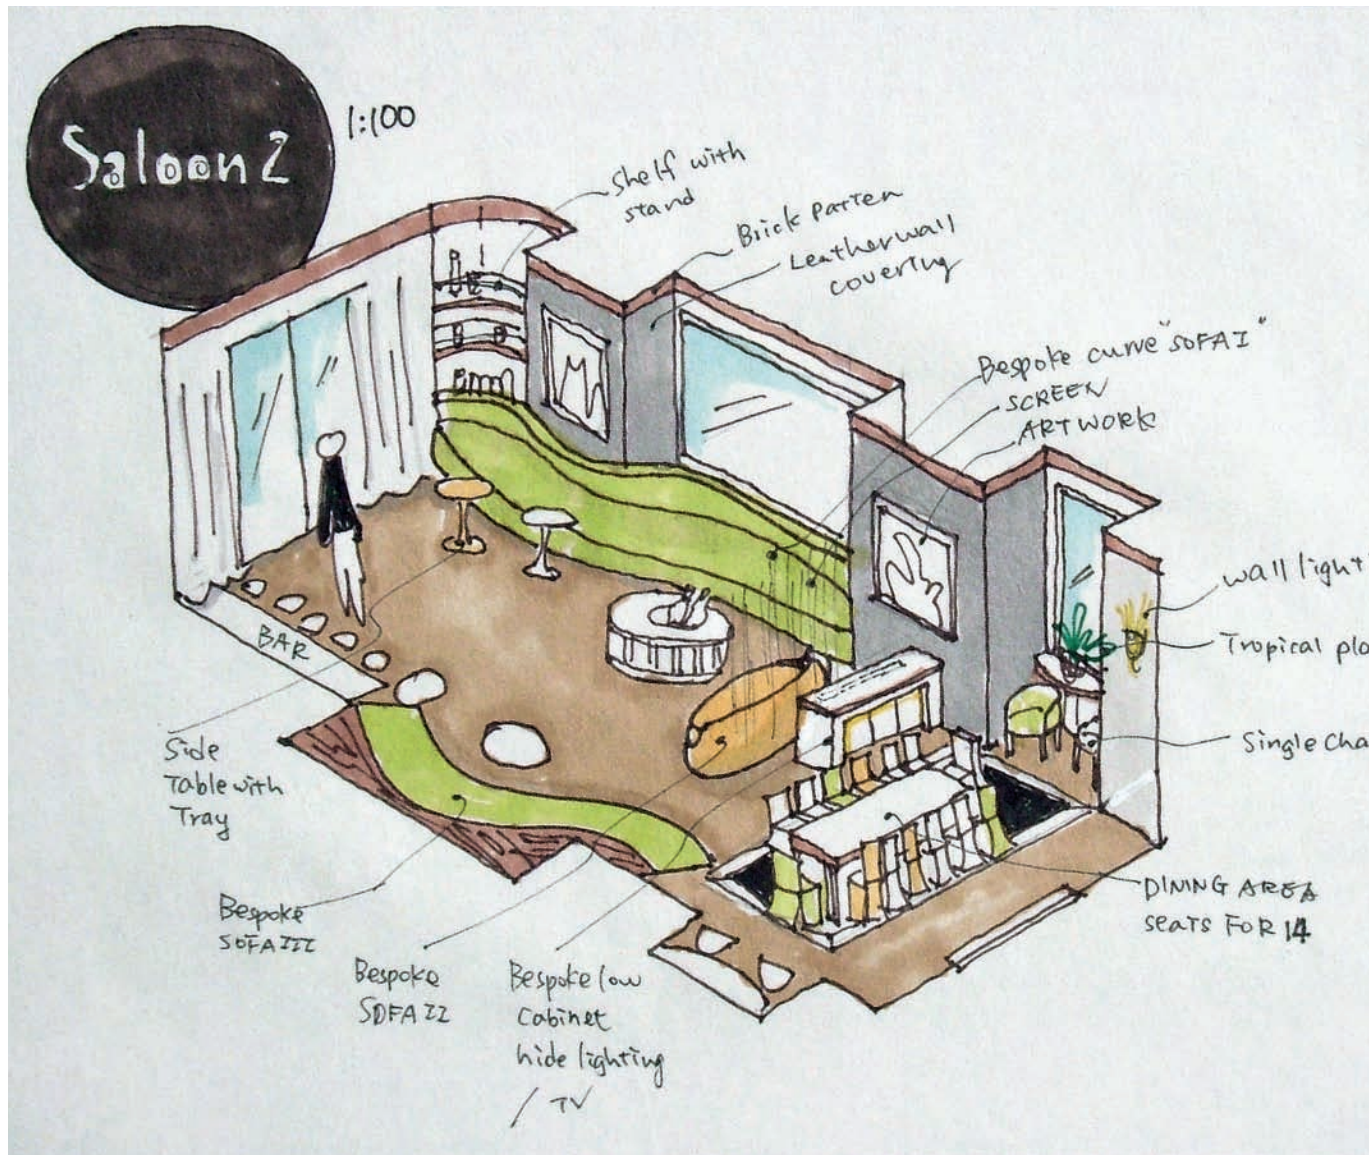 Saloon 2
1:100
Shelf with
stand
Brick Patten
Leather wall
covering
Bespoke curve "SOFA I"
SCREEN
ARTWORK
wall light
Tropical pla
Single Cha
DINING AREA
seats FOR 14
BAR
Side
Table with
Tray
Bespoke
SOFA III
Bespoke
SOFA II
Bespoke low
Cabinet
hide lighting
/ TV